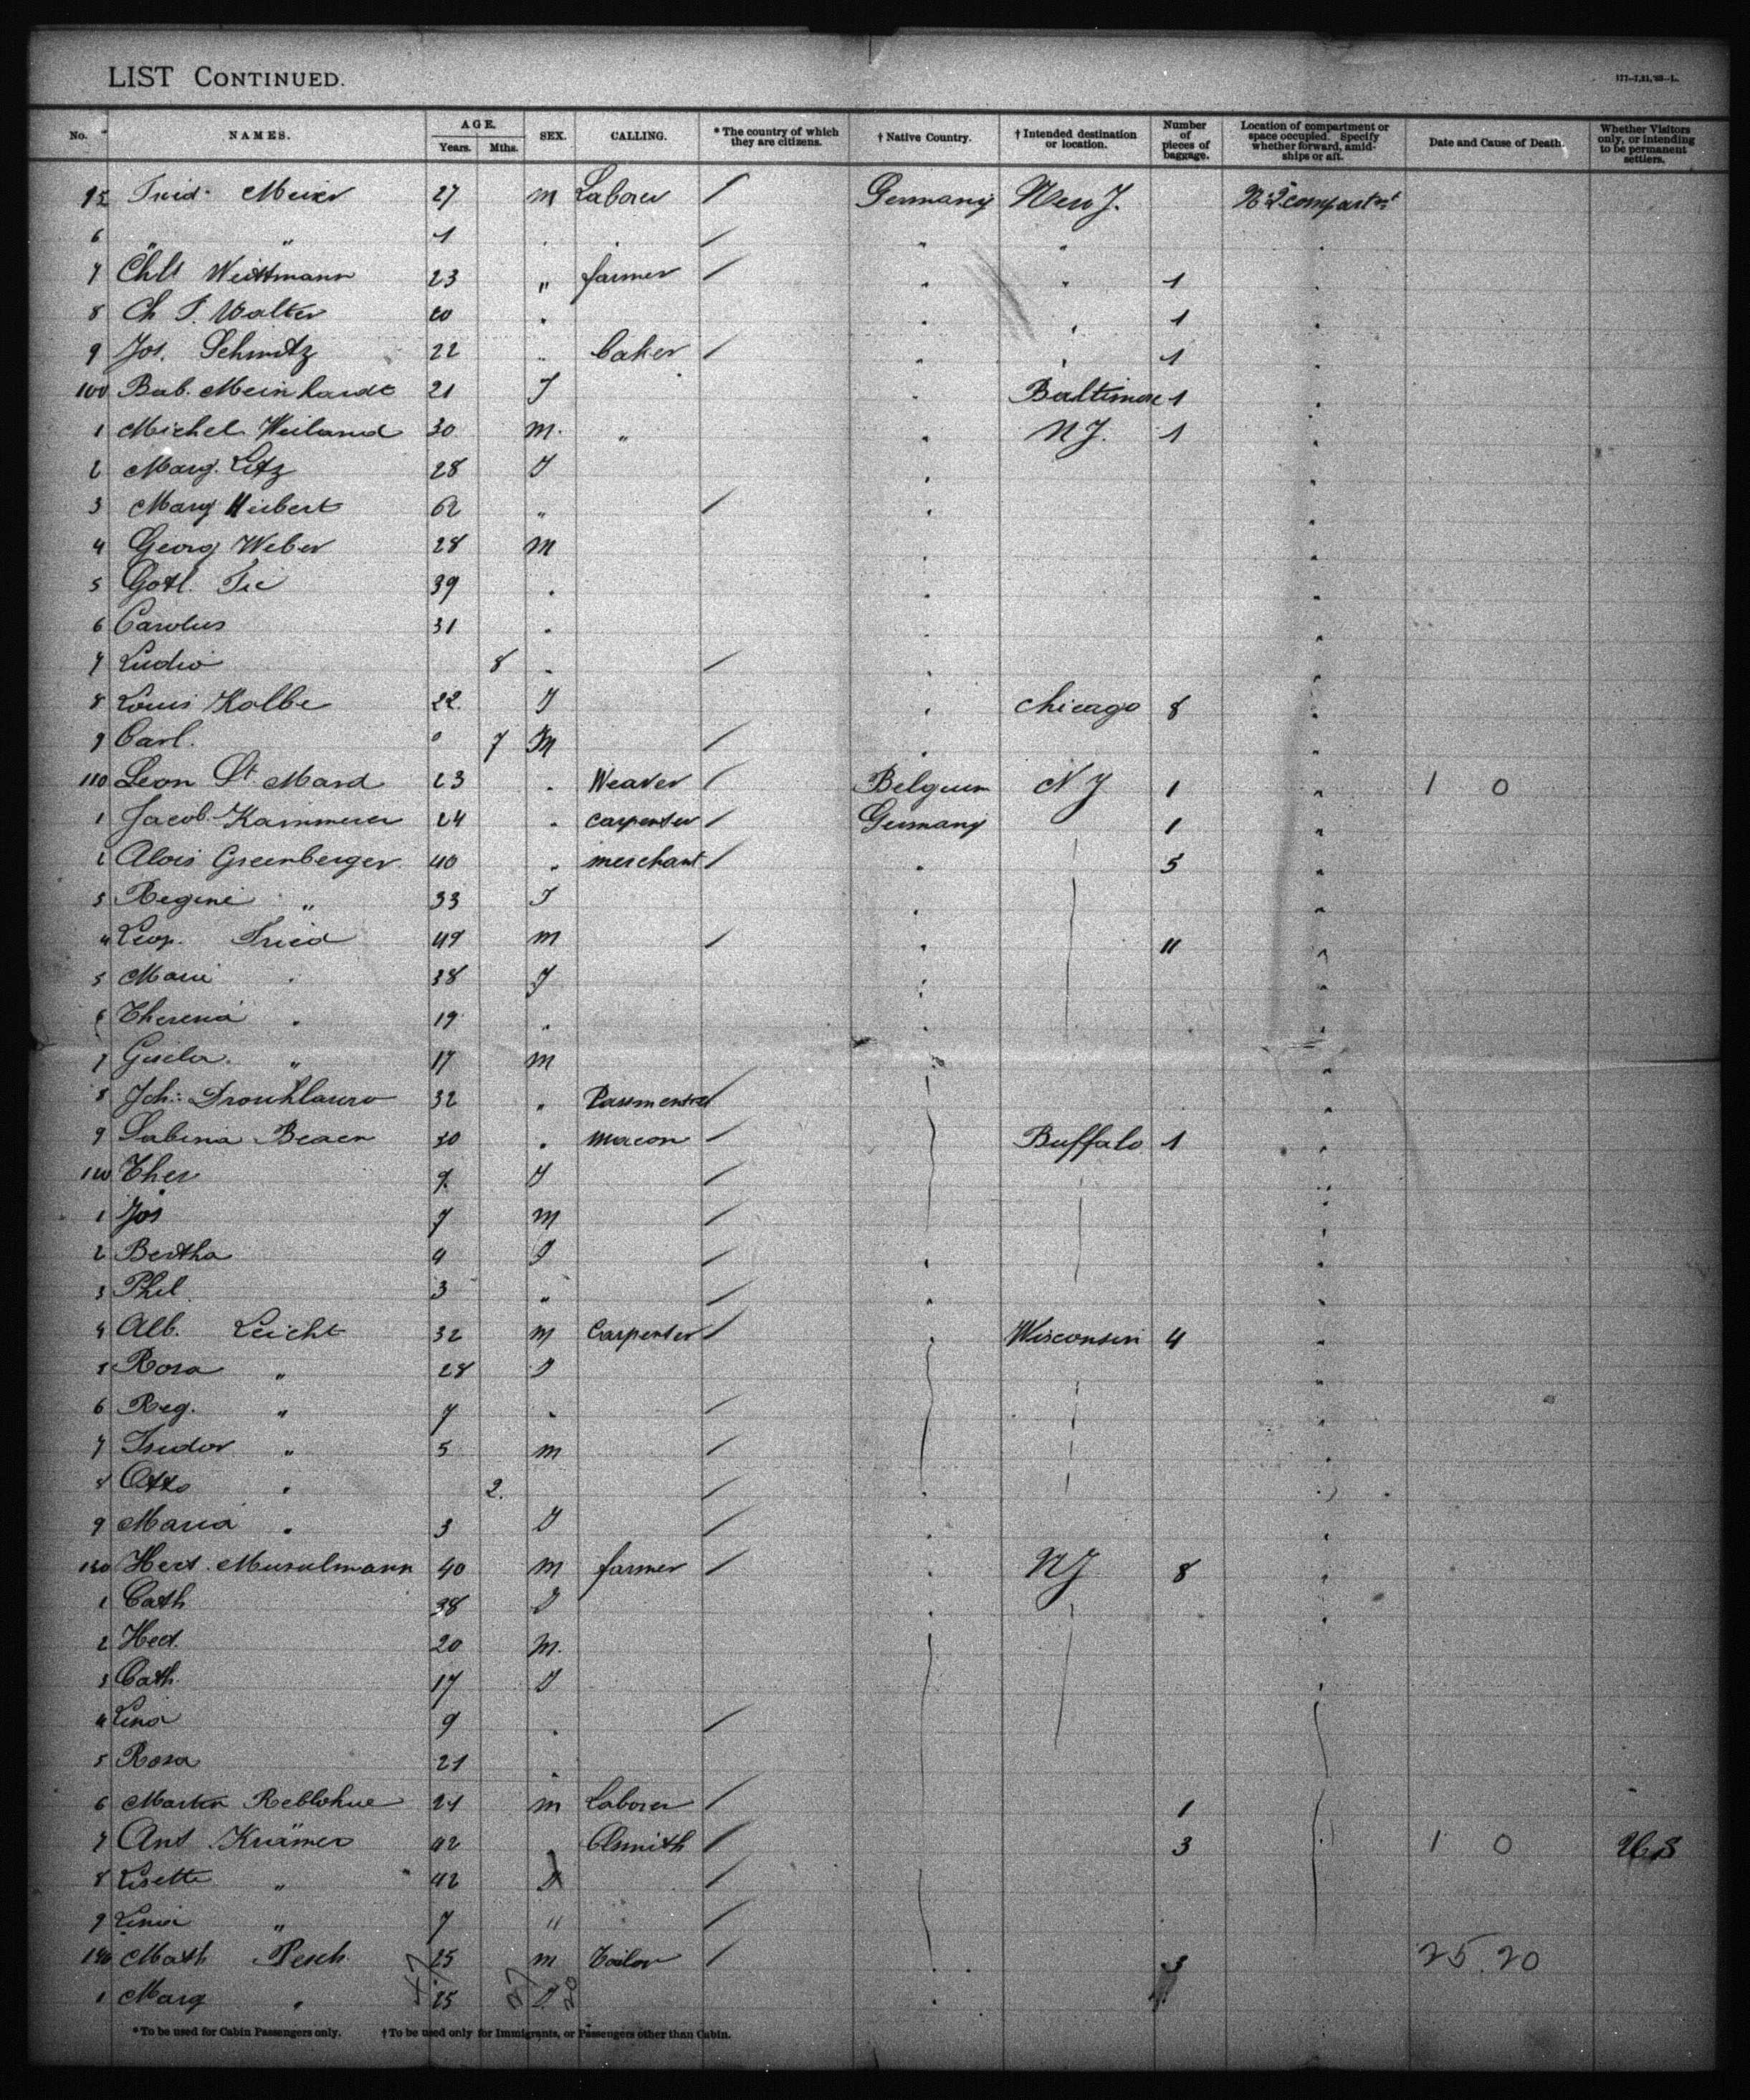 LIST CONTINUED.
177--7,21,'88--L.
No. NAMES. AGE. Years. Mths. SEX. CALLING. * The country of which they are citizens. † Native Country. † Intended destination or location. Number of pieces of baggage. Location of compartment or space occupied. Specify whether forward, amid-ships or aft. Date and Cause of Death. Whether Visitors only, or intending to be permanent settlers.
95 Fried. Meier 27 m Laborer / Germany New J. No 2 compartmt
6 " " 1 " " / " " "
7 Chlt Weittmann 23 " farmer / " " 1 "
8 Ch F. Walter 20 " " " 1 "
9 Jos. Schmitz 22 " baker / " " 1 "
100 Bab. Meinhardt 21 F " Baltimore 1 "
1 Michel Weiland 30 m. " " N J. 1 "
2 Marg. Litz 28 F " "
3 Marg Hiebert 62 " / " "
4 Georg Weber 28 m " "
5 Gotl. Fie 39 " " "
6 Carolus 31 " " "
7 Ludw 8 " / " "
8 Louis Kolbe 22. F " Chicago 8 "
9 Carl. 0 7 M / " "
110 Leon St. Mard 23 " Weaver / Belgium N J 1 " 1 0
1 Jacob Kammerer 24 " carpenter / Germany 1 "
2 Alois Greenberger 40 " merchant / " 5 "
3 Regine " 33 F " "
4 Leop. Fried 49 m / " 11 "
5 Marie " 38 F " "
6 Theresia " 19 " " "
7 Gisela " 17 m " "
8 Joh: 32 " /
9 Sabina Beaer 30 " macon / Buffalo 1 "
120 Ther 9. F / "
1 Jos 7 m / "
2 Bertha 4 F / " "
3 Phil. 3 " / " "
4 Alb. Leicht 32 m Carpenter / " Wisconsin 4 "
5 Rosa " 28 F "
6 Reg. " 7 " / "
7 Isidor " 5 m / "
8 Otto " 2. / " "
9 Maria " 3 F / " "
130 Herd. Musulmann 40 m farmer / " N J 8 "
1 Cath 38 F " "
2 Hed. 20 m.
3 Cath. 17 F "
4 Lina 9 " /
5 Rosa 21 "
6 Martin Reblohue 21 m Laborer / 1
7 Ant Krämer 42 " Clsmith / 3 1 0 U.S
8 Lisette " 42 F /
9 Linia " 7 " /
140 Math Pesch 25 m Tailor / " 3 25.20
1 Marg " 25 F "
47 27 20
* To be used for Cabin Passengers only. † To be used only for Immigrants, or Passengers other than Cabin.